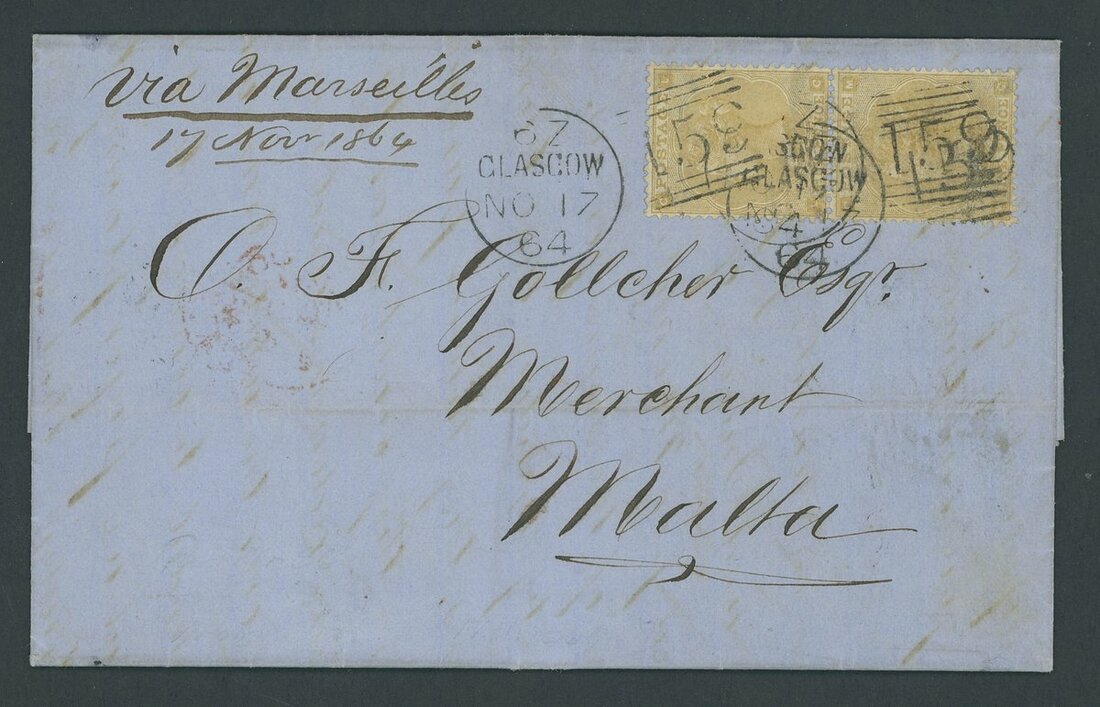 via Marseilles
17 Novr 1864
6Z
GLASGOW
NO 17
64
159
GLASGOW
64
159
O. F. Gollcher Esqr.
Merchant
Malta